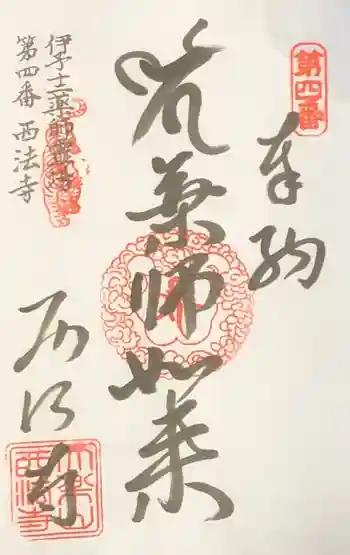 第四番
奉納
薬師如来
伊予十二薬師霊場
第四番 西法寺
西法寺
西法寺